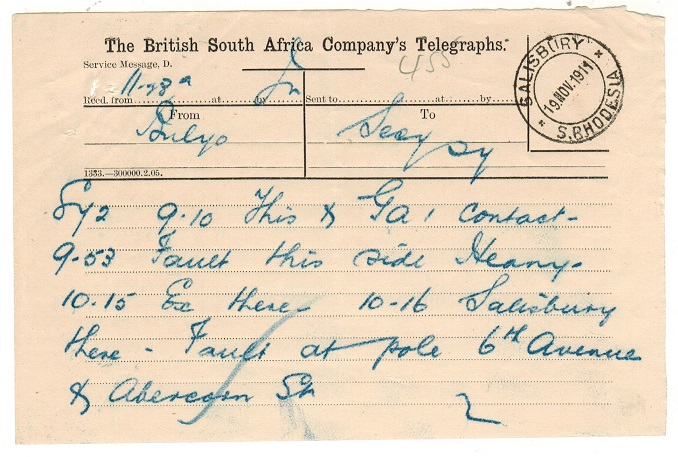 The British South Africa Company's Telegraphs.
Service Message, D.
455
SALISBURY
19.NOV.1911
S.RHODESIA
Recd. from at by Sent to at by
From To
Bulyo
1333.—300000.2.05.
9.10 This & GA1 Contact-
9-53 Fault this side Heany-
10.15 Ex there 10-16 Salisbury
there - Fault at pole 6th Avenue
& Abercorn St